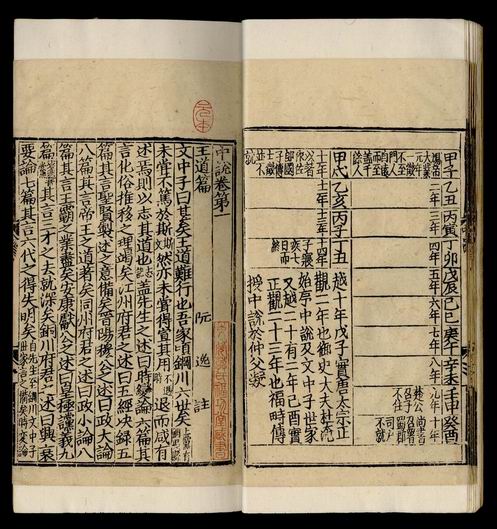 甲子乙丑丙寅丁卯戊辰己巳庚午辛未壬申癸酉
二年三年四年五年六年七年八年九年十年
甲戌乙亥丙子丁丑
越十年戊子實唐太宗正
觀二年也御史大夫杜淹
始序中說及文中子世家
又越二十有二年己酉實
正觀二十三年也福畤傳
授中說於仲父凝
中說卷第一
王道篇 阮逸註
文中子曰甚矣王道難行也吾家頃銅川六世矣
未嘗不篤於斯然亦未嘗得宣其用退而咸有
述焉則以志其道也蓋先生之述曰時變論六篇其
言化俗推移之理竭矣江州府君之述曰五經決錄五
篇其言聖賢製述之意備矣晉陽穆公之述曰政大論
八篇其言帝王之道著矣同州府君之述曰政小論八
篇其言王霸之業盡矣安康獻公之述曰皇極讜義九
篇其言三才之去就深矣銅川府君之述曰興衰
要論七篇其言六代之得失明矣